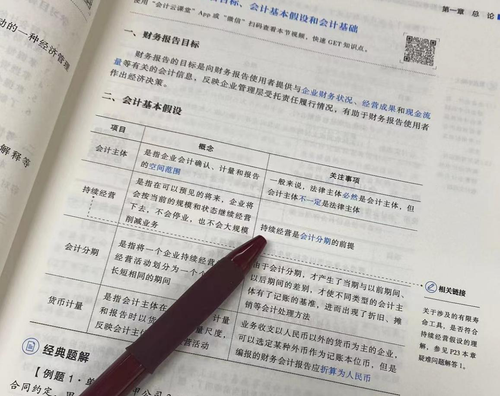 第一章 总 论
目标、会计基本假设和会计基础
使用“会计云课堂”App 或“微信”扫码查看本节视频，快速 GET 知识点。
动的一种经济管理
一、财务报告目标
财务报告的目标是向财务报告使用者提供与企业财务状况、经营成果和现金流
量等有关的会计信息，反映企业管理层受托责任履行情况，有助于财务报告使用者
作出经济决策。
二、会计基本假设
项目 概念 关注事项
会计主体 是指企业会计确认、计量和报告
的空间范围
一般来说，法律主体必然是会计主体，但
会计主体不一定是法律主体
解释等
持续经营
是指在可以预见的将来，企业将
会按当前的规模和状态继续经营
下去，不会停业，也不会大规模
削减业务
持续经营是会计分期的前提
会计分期
是指将一个企业持续经营
经营活动划分为一个个
长短相同的期间
由于会计分期，才产生了当期与以前期间、
以后期间的差别，才使不同类型的会计主
体有了记账的基准，进而出现了折旧、摊
销等会计处理方法
货币计量
是指会计主体在
和报告时以货
反映会计主体
量尺度，
营活动
业务收支以人民币以外的货币为主的企业，
可以选定某种外币作为记账本位币，但是
编报的财务会计报告应折算为人民币
相关链接
关于涉及的有限寿
命工具，是否符合
持续经营假设的理
解，参见 P23 本章
疑难问题解答 1。
经典题解
【例题 1·单
合同约定，甲